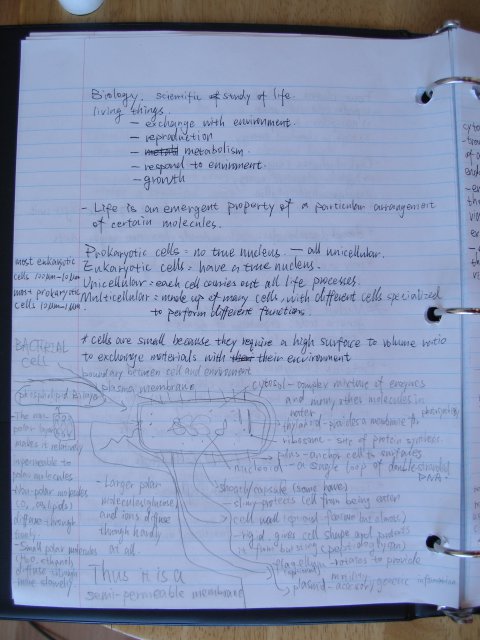 Biology. scientific study of life.
living things.
- exchange with environment.
- reproduction
- metabolism.
- respond to enviroment.
- growth
- Life is an emergent property of a particular arrangement
of certain molecules.
Prokaryotic cells = no true nucleus. — all unicellular.
Eukaryotic cells = have a true nucleus.
Unicellular = each cell carries out all life processes.
Multicellular = made up of many cells, with different cells specialized
to perform different functions.
most eukaryotic
cells 100µm-10µm
most prokaryotic
cells 10µm-1µm.
* cells are small because they require a high surface to volume ratio
to exchange materials with their environment
BACTERIAL
cell
boundary between cell and environment
plasma membrane
phospholipid bilayer
cytosol - complex mixture of enzymes
and many other molecules in
water
thylakoid - provides a membrane for photosynthesis
ribosome - site of protein synthesis
pilus - anchor cell to surfaces
nucleoid - a single loop of double-stranded
DNA.
- The non-
polar layer
makes it relatively
impermeable to
polar molecules
- Non-polar molecules
diffuse through
freely.
- Small polar molecules
diffuse through
more slowly.
- Larger polar
molecules (glucose)
and ions diffuse
through hardly
at all.
Thus it is a
semi-permeable membrane
sheath/capsule (some have)
- slimy protects cell from being eaten
cell wall
- rigid, gives cell shape and protects
it from bursting (peptidoglycan)
flagellum - rotates to provide
motility
plasmid - accessory genetic information